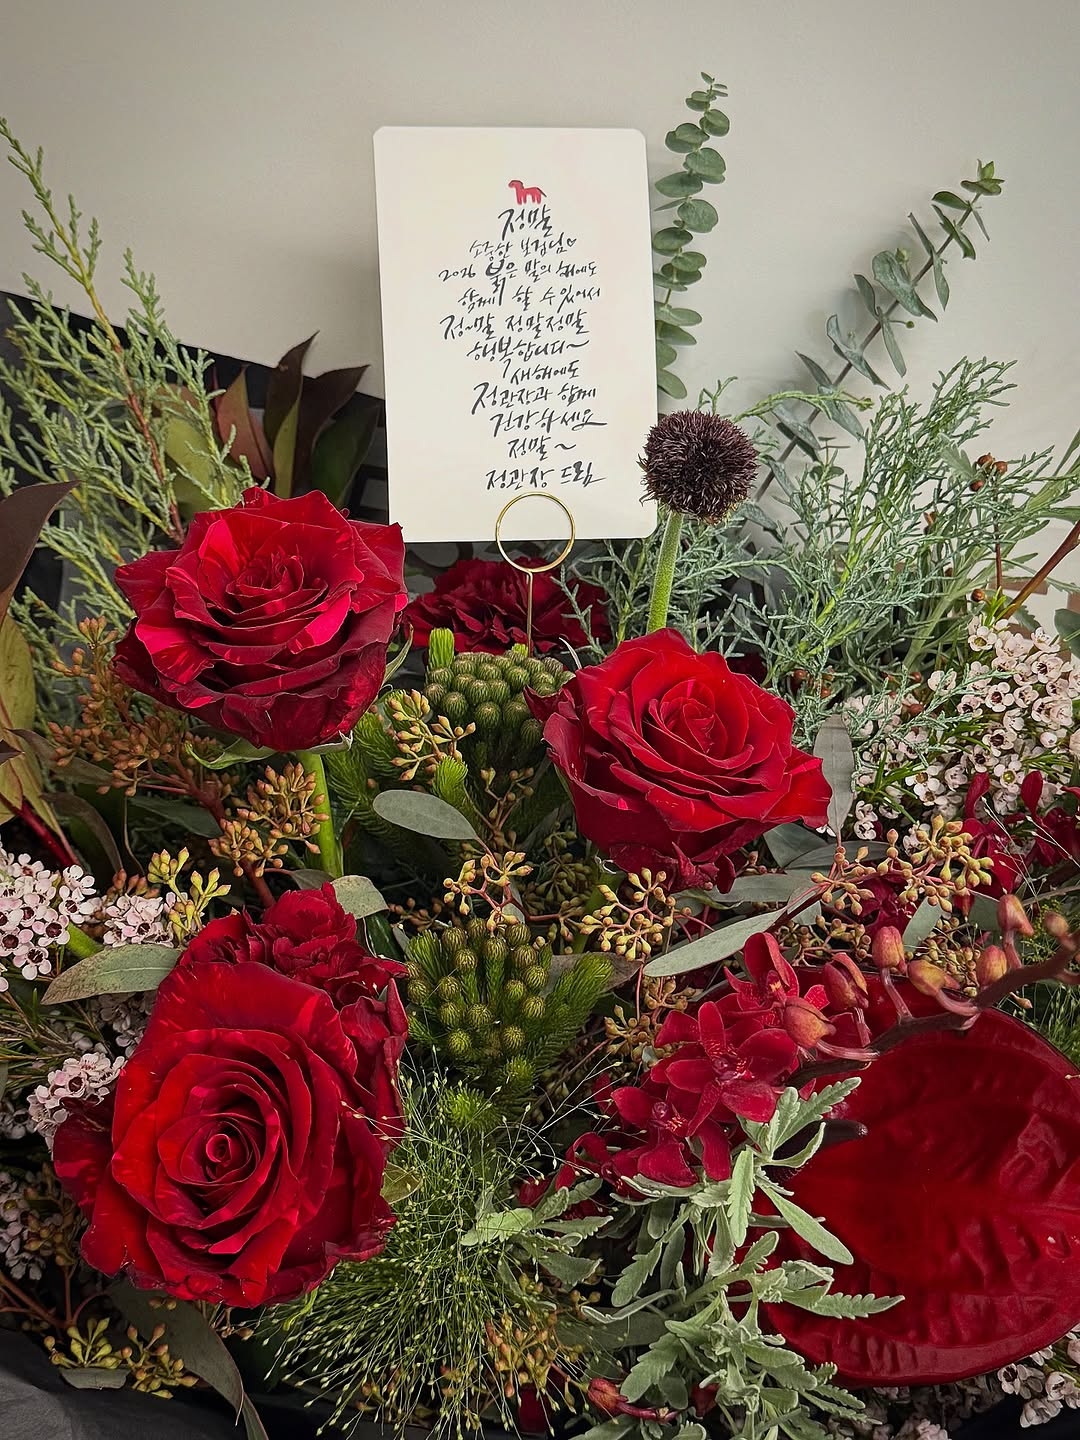 정말
소중한 보검님♡
2026 붉은 말의 해에도
함께 할 수 있어서
정~말 정말정말
행복합니다~
새해에도
정관장과 함께
건강하세요
정말~
정관장 드림